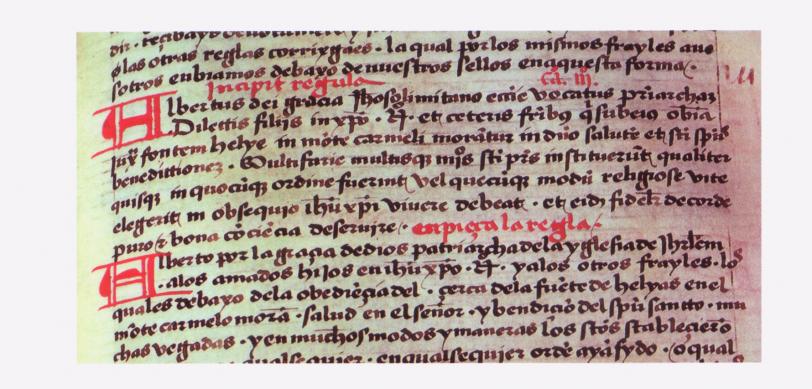 dir. reçibayo deuotamente
⁊ las otras reglas corriygaes. la qual por los mismos frayles auo
sotros enbiamos debaxo de nuestros sellos en aquesta forma.
Incipit regula Ca. III.
Albertus dei gracia Jhosolimitano eccīe vocatus priarchaz
Dilettis filijs in xpō. B. et ceteris frībꝫ q̄ subeiꝰ obīa
iux̄ fontem helye in mōte carmeli morātur in dnō salutē et sti spūs
benedittionez. Multifarie multisqꝫ mōs sti prīs instituerūt qualiter
quisqꝫ in quocūqꝫ ordine fuerint vel quecūqꝫ modū religiose vite
elegerit in obsequio ihū xpī viuere debeat. et eidī fidelr̄ de corde
puro ⁊ bona cōciēcia deseruire. enpieça la regla.
Alberto por la gracia de dios patriarcha dela yglesia de Jhrlēm
. alos amados hijos en ihū xpō. B. y alos otros frayles. los
quales debaxo dela obediēcia del. çerca dela fuēte de helyas en el
mōte carmelo morā. salud en el señor. y bendiciō del spū sancto. mu
chas vegadas. y en muchos modos y maneras los stōs stableciero
qualsequier. en qualsequier ordē aya sydo. o qual